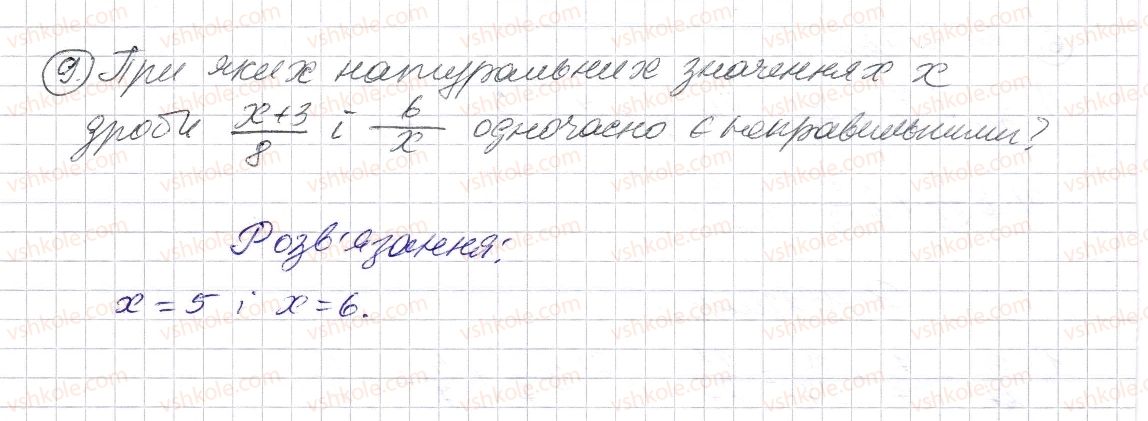 9. При яких натуральних значеннях x
дроби x+3/8 і 6/x одночасно є неправильними?
Розв'язання:
x = 5 і x = 6.